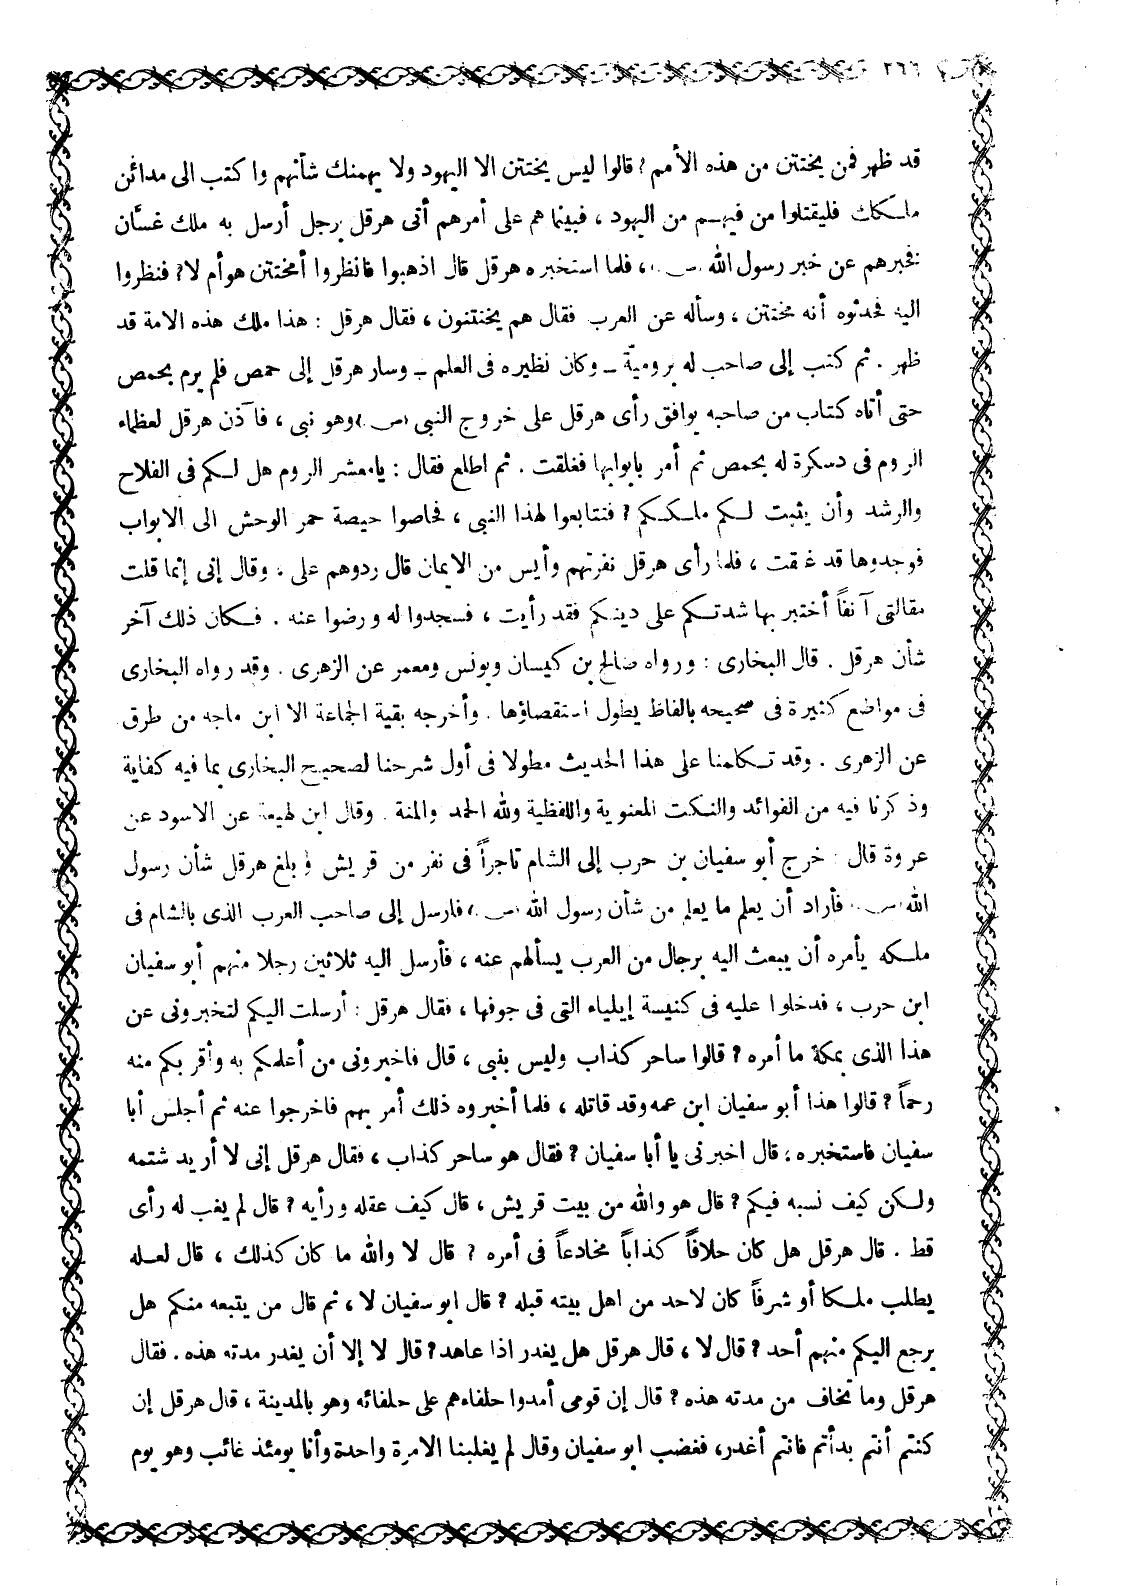 ٢٦٦
قد ظهر فمن يختتن من هذه الأمم ? قالوا ليس يختتن الا اليهود ولا يهمنك شأنهم واكتب الى مدائن
ملكك فليقتلوا من فيهم من اليهود ، فبينما هم على أمرهم أتى هرقل برجل أرسل به ملك غسَّان
فخبرهم عن خبر رسول الله (ص) ، فلما استخبره هرقل قال اذهبوا فانظروا أمختتن هو أم لا? فنظروا
اليه فحدثوه أنه مختتن ، وسأله عن العرب فقال هم يختتنون ، فقال هرقل : هذا ملك هذه الامة قد
ظهر . ثم كتب إلى صاحب له برومية ــ وكان نظيره فى العلم ــ وسار هرقل إلى حمص فلم يرم بحمص
حتى أتاه كتاب من صاحبه يوافق رأى هرقل على خروج النبى (ص) وهو نبى ، فآذن هرقل لعظماء
الروم فى دسكرة له بحمص ثم أمر بابوابها فغلقت . ثم اطلع فقال : يامعشر الروم هل لكم فى الفلاح
والرشد وأن يثبت لكم ملككم ? فتتابعوا لهذا النبى ، فحاصوا حيصة حمر الوحش الى الابواب
فوجدوها قد غلقت ، فلما رأى هرقل نفرتهم وأيس من الايمان قال ردوهم على ، وقال إنى إنما قلت
مقالتى آنفاً أختبر بها شدتكم على دينكم فقد رأيت ، فسجدوا له ورضوا عنه . فكان ذلك آخر
شأن هرقل . قال البخارى : ورواه صالح بن كيسان ويونس ومعمر عن الزهرى . وقد رواه البخارى
فى مواضع كثيرة فى صحيحه بالفاظ يطول استقصاؤها . وأخرجه بقية الجماعة الا ابن ماجه من طرق
عن الزهرى . وقد تكلمنا على هذا الحديث مطولا فى أول شرحنا لصحيح البخارى بما فيه كفاية
وذكرنا فيه من الفوائد والنكت المعنوية واللفظية ولله الحمد والمنة . وقال ابن لهيعة عن الاسود عن
عروة قال : خرج أبو سفيان بن حرب إلى الشام تاجراً فى نفر من قريش وبلغ هرقل شأن رسول
الله (ص) ، فأراد أن يعلم ما يعلم من شأن رسول الله (ص) ، فارسل إلى صاحب العرب الذى بالشام فى
ملكه يأمره أن يبعث اليه برجال من العرب يسألهم عنه ، فأرسل اليه ثلاثين رجلا منهم أبو سفيان
ابن حرب ، فدخلوا عليه فى كنيسة إيلياء التى فى جوفها ، فقال هرقل : أرسلت اليكم لتخبرونى عن
هذا الذى بمكة ما أمره ? قالوا ساحر كذاب وليس بنبى ، قال فاخبرونى من أعلمكم به وأقربكم منه
رحماً ? قالوا هذا أبو سفيان ابن عمه وقد قاتله ، فلما أخبروه ذلك أمر بهم فاخرجوا عنه ثم أجلس أبا
سفيان فاستخبره ، قال اخبرنى يا أبا سفيان ? فقال هو ساحر كذاب ، فقال هرقل إنى لا أريد شتمه
ولكن كيف نسبه فيكم ? قال هو والله من بيت قريش ، قال كيف عقله ورأيه ? قال لم يغب له رأى
قط . قال هرقل هل كان حلافاً كذاباً مخادعاً فى أمره ? قال لا والله ما كان كذلك ، قال لعله
يطلب ملكا أو شرفاً كان لاحد من اهل بيته قبله ? قال ابو سفيان لا ، ثم قال من يتبعه منكم هل
يرجع اليكم منهم أحد ? قال لا ، قال هرقل هل يغدر اذا عاهد ? قال لا إلا أن يغدر مدته هذه . فقال
هرقل وما تخاف من مدته هذه ? قال إن قومى أمدوا حلفاءهم على حلفائه وهو بالمدينة ، قال هرقل إن
كنتم أنتم بدأتم فانتم أغدر، فغضب ابو سفيان وقال لم يغلبنا الا مرة واحدة وأنا يومئذ غائب وهو يوم